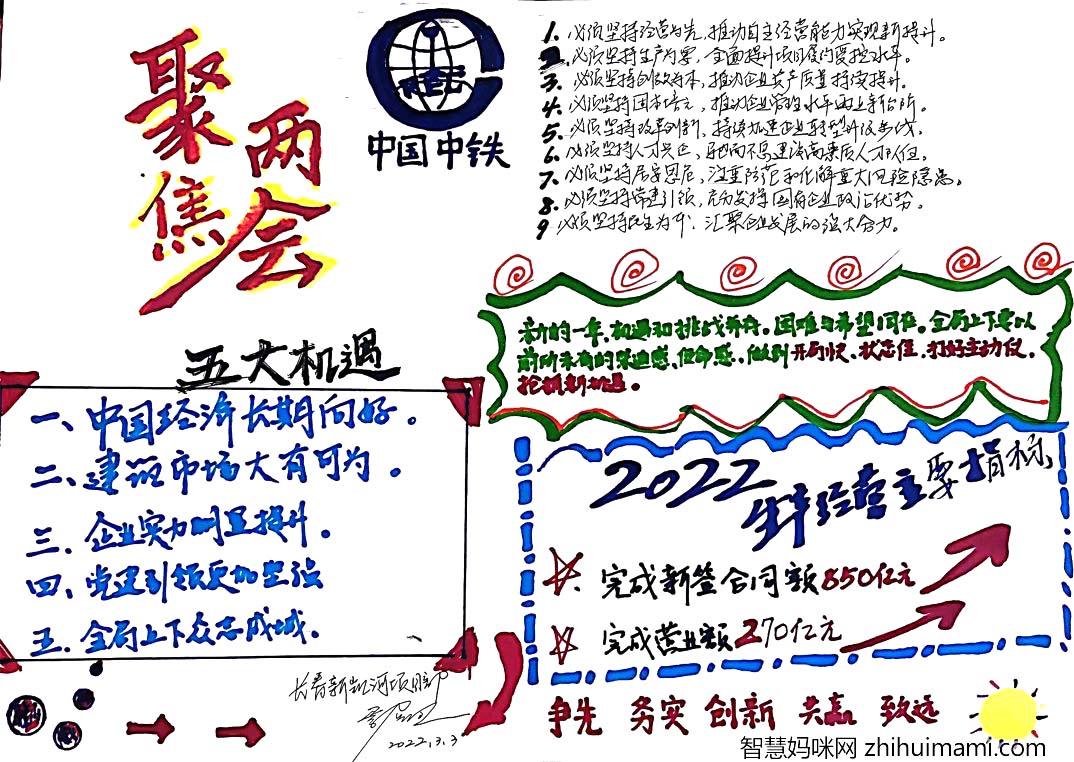 聚焦
两会
中国中铁
1. 必须坚持经营为先，推动自主经营能力实现新提升。
2. 必须坚持生产为要，全面提升项目履约管控水平。
3. 必须坚持创效为本，推动企业资产质量持续提升。
4. 必须坚持固本培元，推动企业管理水平再上新台阶。
5. 必须坚持改革创新，持续加速企业转型升级步伐。
6. 必须坚持人才兴企，驰而不息建设高素质人才队伍。
7. 必须坚持居安思危，注重防范和化解重大风险隐患。
8. 必须坚持党建引领，充分发挥国有企业政治优势。
9 必须坚持民生为本，汇聚企业发展的强大合力。
新的一年，机遇和挑战并存。困难与希望同在。全局上下要以
前所未有的紧迫感、使命感、做到开局快、状态佳、打好主动仗，
抢抓新机遇。
五大机遇
一、中国经济长期向好。
二、建筑市场大有可为。
三、企业实力明显提升。
四、党建引领更加坚强
五、全局上下众志成城。
2022
年经营主要指标
完成新签合同额850亿元
完成营业额270亿元
长春新凯河项目部
2022.3.3
争先 务实 创新 共赢 致远
智慧妈咪网 zhihuimami.com